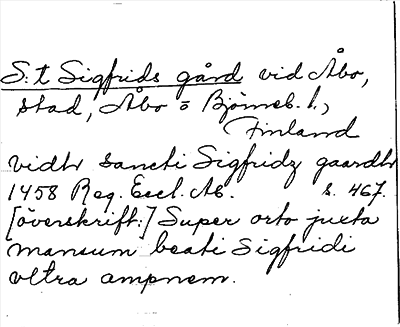 S:t Sigfrids gård vid Åbo,
stad, Åbo o Björneb. l.,
Finland
vidhr sancti Sigfridz gaardhr
1458 Reg. Eccl. Ab. s. 467.
[överskrift:] Super orto juxta
mansum beati Sigfridi
vltra ampnem.